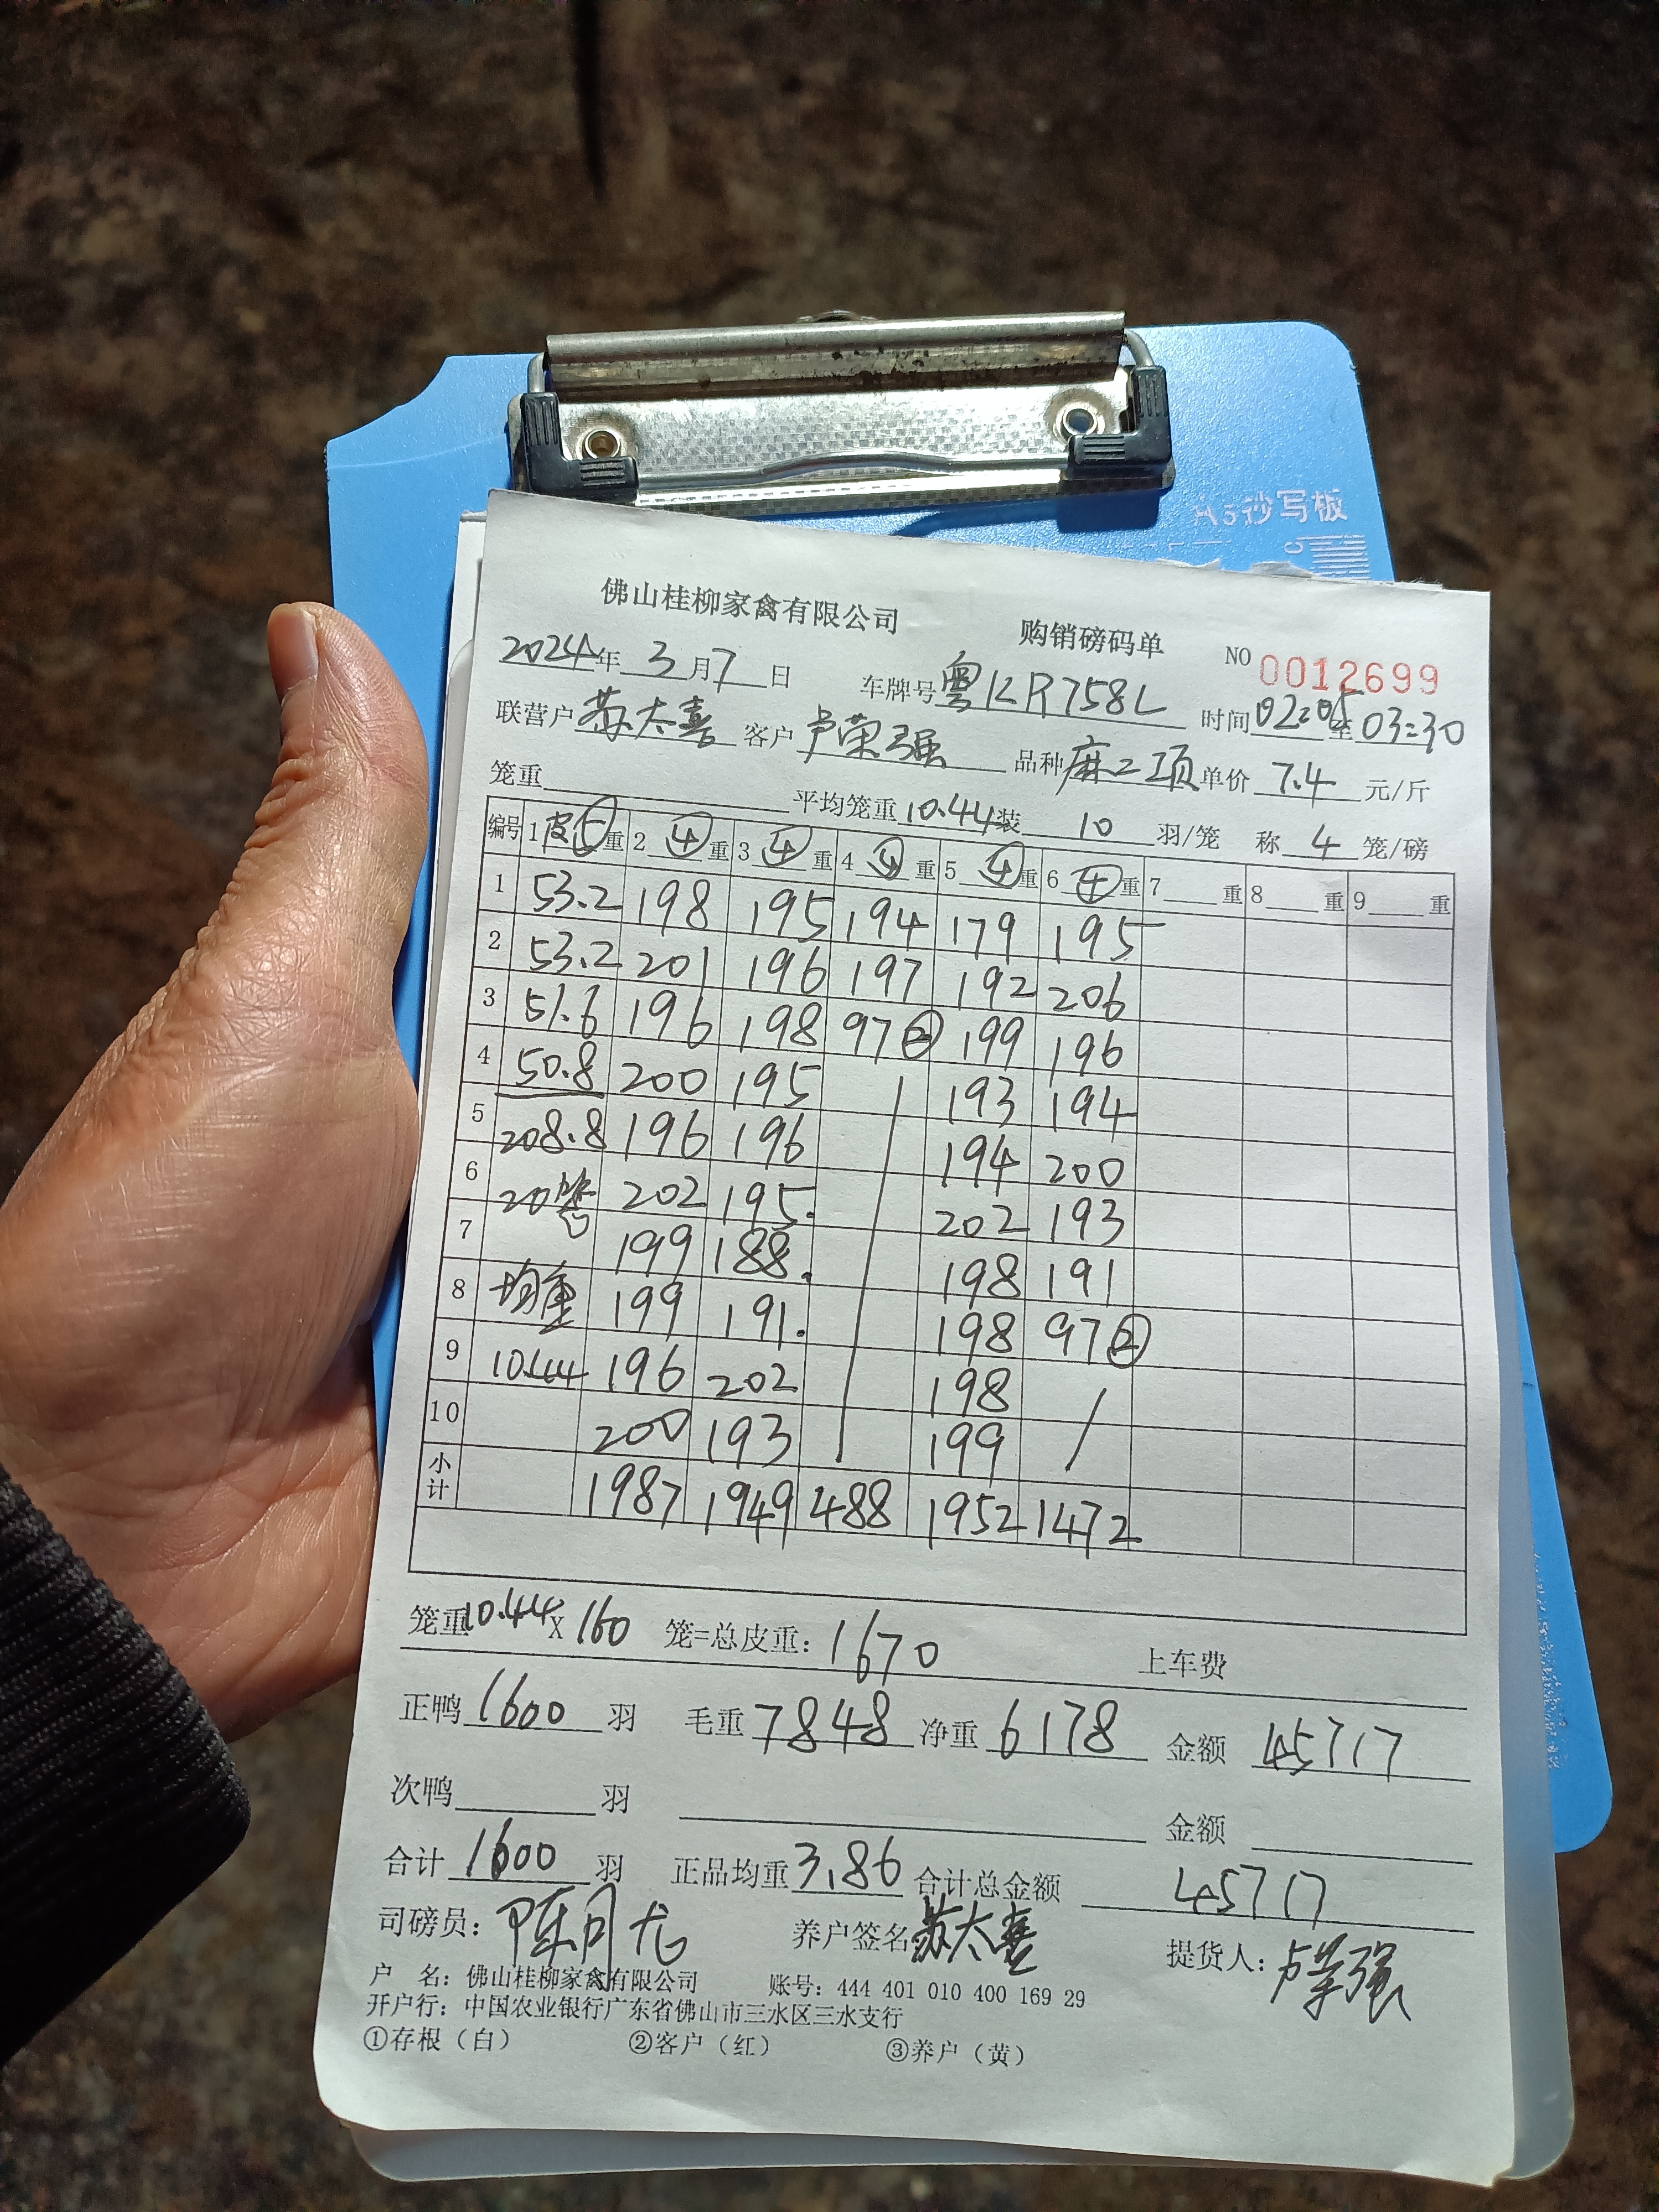 A5抄写板
佛山桂柳家禽有限公司 购销磅码单 NO 0012699
2024年3月7日 车牌号粤KR758L 时间02:05至03:30
联营户苏太喜 客户卢荣强 品种麻二项 单价7.4元/斤
笼重 平均笼重10.44装10羽/笼 称4笼/磅
编号 1皮⑤重 2④重 3④重 4④重 5④重 6④重 7重 8重 9重
1 53.2 198 195 194 179 195
2 53.2 201 196 197 192 206
3 51.6 196 198 97② 199 196
4 50.8 200 195 193 194
5 208.8 196 196 194 200
6 20笼 202 195. 202 193
7 199 188. 198 191
8 均重 199 191. 198 97②
9 10.44 196 202 198
10 200 193 199
小计 1987 1949 488 1952 1472
笼重10.44X160笼=总皮重:1670 上车费
正鸭1600羽 毛重7848 净重6178 金额45717
次鸭 羽 金额
合计1600羽 正品均重3.86 合计总金额45717
司磅员:陈月龙 养户签名苏太喜 提货人:卢荣强
户 名:佛山桂柳家禽有限公司 账号:444 401 010 400 169 29
开户行:中国农业银行广东省佛山市三水区三水支行
①存根(白) ②客户(红) ③养户(黄)